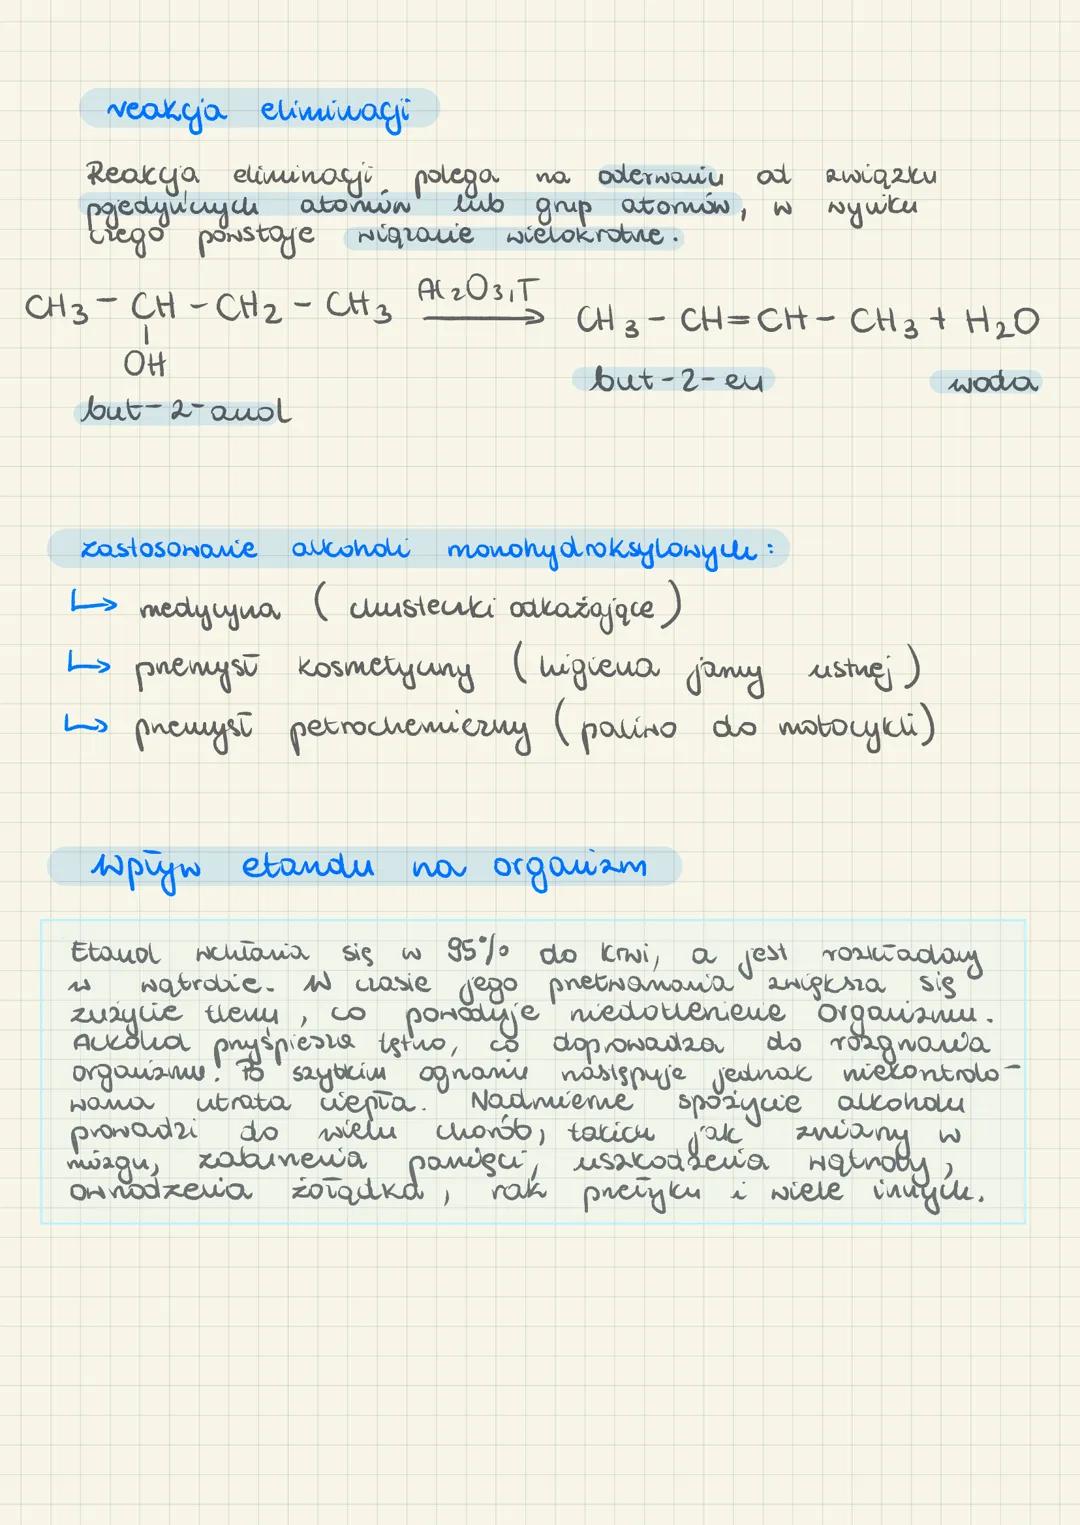 reakcja eliminacji
Reakcja eliminacji polega na oderwaniu od związku
pojedynczych atomów lub grup atomów, w wyniku
czego powstaje wiązanie wielokrotne.
CH3 - CH - CH2 - CH3 Al2O3, T → CH3 - CH = CH - CH3 + H2O
OH
but-2-en woda
but-2-anol
zastosowanie alkoholi monohydroksylowych:
↳ medycyna (chusteczki odkażające)
↳ przemysł kosmetyczny (higiena jamy ustnej)
↳ przemysł petrochemiczny (paliwo do motocykli)
Wpływ etanolu na organizm
Etanol wchłania się w 95% do krwi, a jest rozkładany
w wątrobie. W czasie jego przetwarzania zwiększa się
zużycie tlenu, co powoduje niedotlenienie organizmu.
Alkohol przyśpiesza tętno, co doprowadza do rozgrzania
organizmu. Po szybkim ogrzaniu następuje jednak niekontrolo-
wana utrata ciepła. Nadmierne spożycie alkoholu
prowadzi do wielu chorób, takich jak zmiany w
mózgu, zaburzenia pamięci, uszkodzenia wątroby,
owrzodzenia żołądka, rak przełyku i wiele innych.